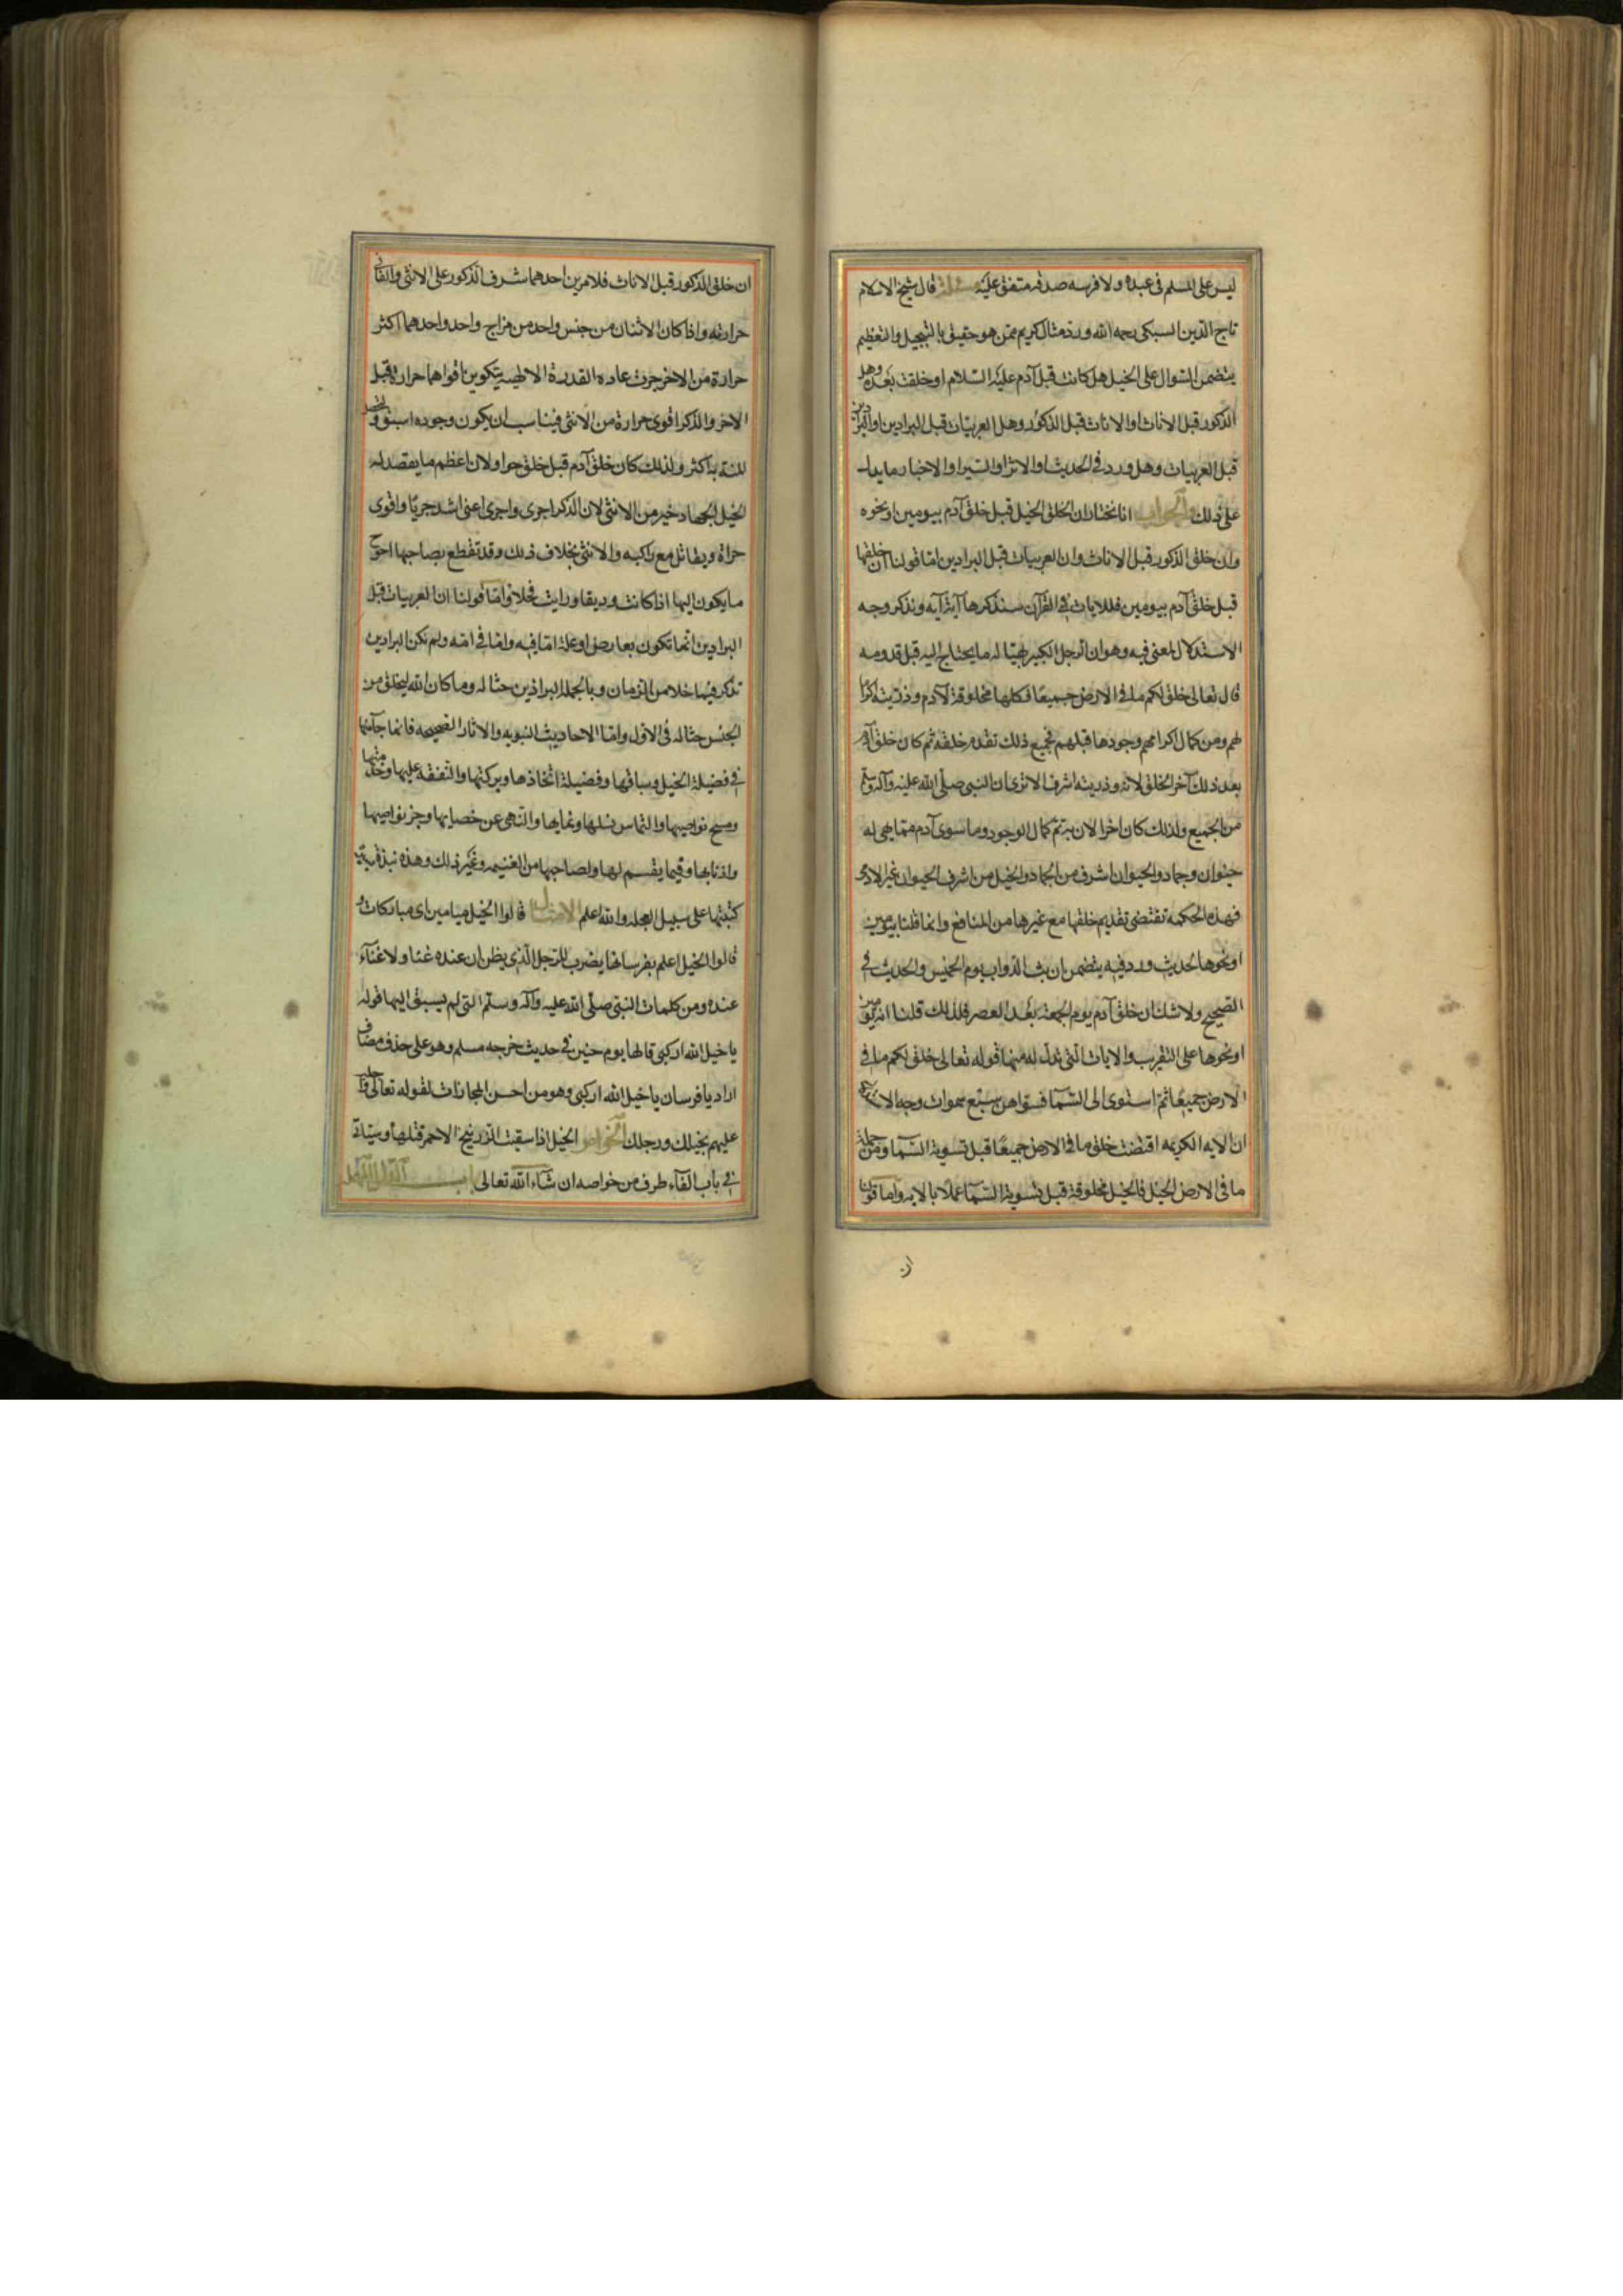 ليس على المسلم فى عبده ولا فرسه صدقه متفق عليه مسئلة قال شيخ الاسلام
تاج الدين السبكى رحمه الله ورد مثال كريم ممن هو حقيق بالتبجيل والتعظيم
يتضمن السوال على الخيل هل كانت قبل آدم عليه السلام او خلقت بعده وهل
الذكور قبل الاناث او الاناث قبل الذكور وهل العربيات قبل البرادين او البرادين
قبل العربيات وهل ورد فى الحديث او الاثر او السير او الاخبار ما يدل
على ذلك والجواب انا نختار ان الخلق الخيل قبل خلق آدم بيومين او نحوه
وان خلق الذكور قبل الاناث وان العربيات قبل البرادين اما قولنا ان خلقها
قبل خلق آدم بيومين فللايات فى القرآن سنذكرها آية آية ونذكر وجه
الاستدلال لمعنى فيه وهو ان الرجل الكبير يهيا له ما يحتاج اليه قبل قدومه
قال تعالى خلق لكم ما فى الارض جميعا فكلها مخلوقة لآدم وذريته اكراما
لهم ومن كمال اكرامهم وجودها قبلهم فجميع ذلك تقدم خلقه ثم كان خلق آدم
بعد ذلك آخر الخلق لانه وذريته اشرف الا ترى ان النبى صلى الله عليه وآله وسلم
من الجميع ولذلك كان اخرا لان به تم كمال الوجود وما سوى آدم مما هى له
حيوان وجماد والحيوان اشرف من الجماد والخيل من اشرف الحيوان غير الادمى
فهذه الحكمه تقتضى تقديم خلقها مع غيرها من المنافع وانما قلنا بيومين
او نحوها لحديث ورد فيه يتضمن ان بث الدواب يوم الخميس والحديث فى
الصحيح ولا شك ان خلق آدم يوم الجمعة بعد العصر فلذلك قلنا انه بيومين
او نحوها على التقريب والايات التى تدل له منها قوله تعالى خلق لكم ما فى
الارض جميعا ثم استوى الى السمآ فسواهن سبع سموات وجه الاستدلال
ان الايه الكريمه اقتضت خلق ما فى الارض جميعا قبل تسوية السمآ ومن جملة
ما فى الارض الخيل فالخيل مخلوقة قبل تسوية السمآ عملا بالايه واما قولنا
ان
ان خلق الذكور قبل الاناث فلامرين احدهما شرف الذكور على الانثى والثانى
حرارته واذا كان الاثنان من جنس واحد من مزاج واحد واحدهما اكثر
حرارة من الاخر جرت عاده القدرة الالهيه بتكوين اقواهما حرارة قبل
الاخر والذكر اقوى حرارة من الانثى فيناسب ان يكون وجوده اسبق ولتحصل
المنة به اكثر ولذلك كان خلق آدم قبل خلق حوا ولان اعظم ما يقصد له
الخيل الجهاد خير من الانثى لان الذكر اجرى واجرى اعنى اشد جريا واقوى
جراة ويقاتل مع راكبه والانثى بخلاف ذلك وقد تقطع بصاحبها احوج
ما يكون اليها اذا كانت وديقا ورايت فحلا واما قولنا ان العربيات قبل
البرادين انما تكون بعارض او علة اما فيه واما فى امه ولم تكن البرادين
تذكر فيما خلا من الزمان وبالجملة البراذين حثاله وما كان الله ليخلق من
الجنس حثاله فى الاول واما الاحاديث النبويه والاثار الصحيحه فانما جآت
فى فضيلة الخيل وسباقها وفضيلة اتخاذها وبركتها والنفقه عليها وخدمتها
ومسح نواصيها والتماس نسلها ونمايها والنهى عن خصايها وجز نواصيها
واذنابها وفيما يقسم لها ولصاحبها من الغنيمه وغير ذلك وهذه نبذة
كتبتها على سبيل العجله والله اعلم الامثال قالوا الخيل ميامين اى مباركات و
قالوا الخيل اعلم بفرسانها يضرب للرجل الذى يظن ان عنده غنا ولا غنآء
عنده ومن كلمات النبى صلى الله عليه وآله وسلم التى لم يسبق اليها قوله
يا خيل الله اركبى قالها يوم حنين فى حديث خرجه مسلم وهو على حذف مضاف
اراد يا فرسان يا خيل الله اركبى وهو من احسن المجازات لقوله تعالى واجلب
عليهم بخيلك ورجلك الخواص الخيل اذا سقيت الزرنيخ الاحمر قتلها وسياتى
فى باب الفآء طرف من خواصه ان شآء الله تعالى باب